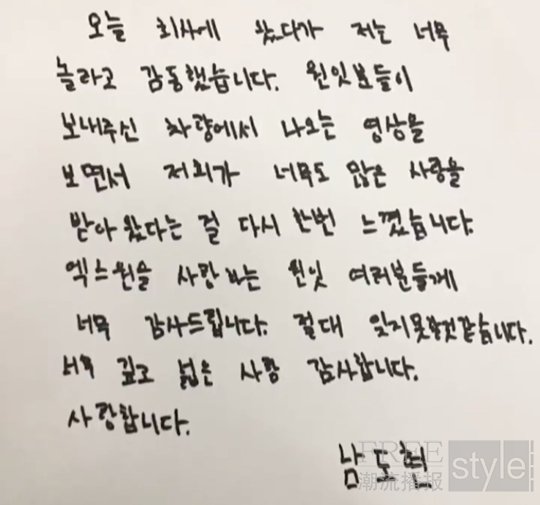 오늘 회사에 왔다가 저는 너무
놀라고 감동했습니다. 원잇분들이
보내주신 차량에서 나오는 영상을
보면서 저희가 너무도 많은 사랑을
받아 왔다는 걸 다시 한번 느꼈습니다.
엑스원을 사랑하는 원잇 여러분들께
너무 감사드립니다. 절대 잊지못할것같습니다.
너무 깊고 넓은 사랑 감사합니다.
사랑합니다.
남도현
FREE style
潮流播报